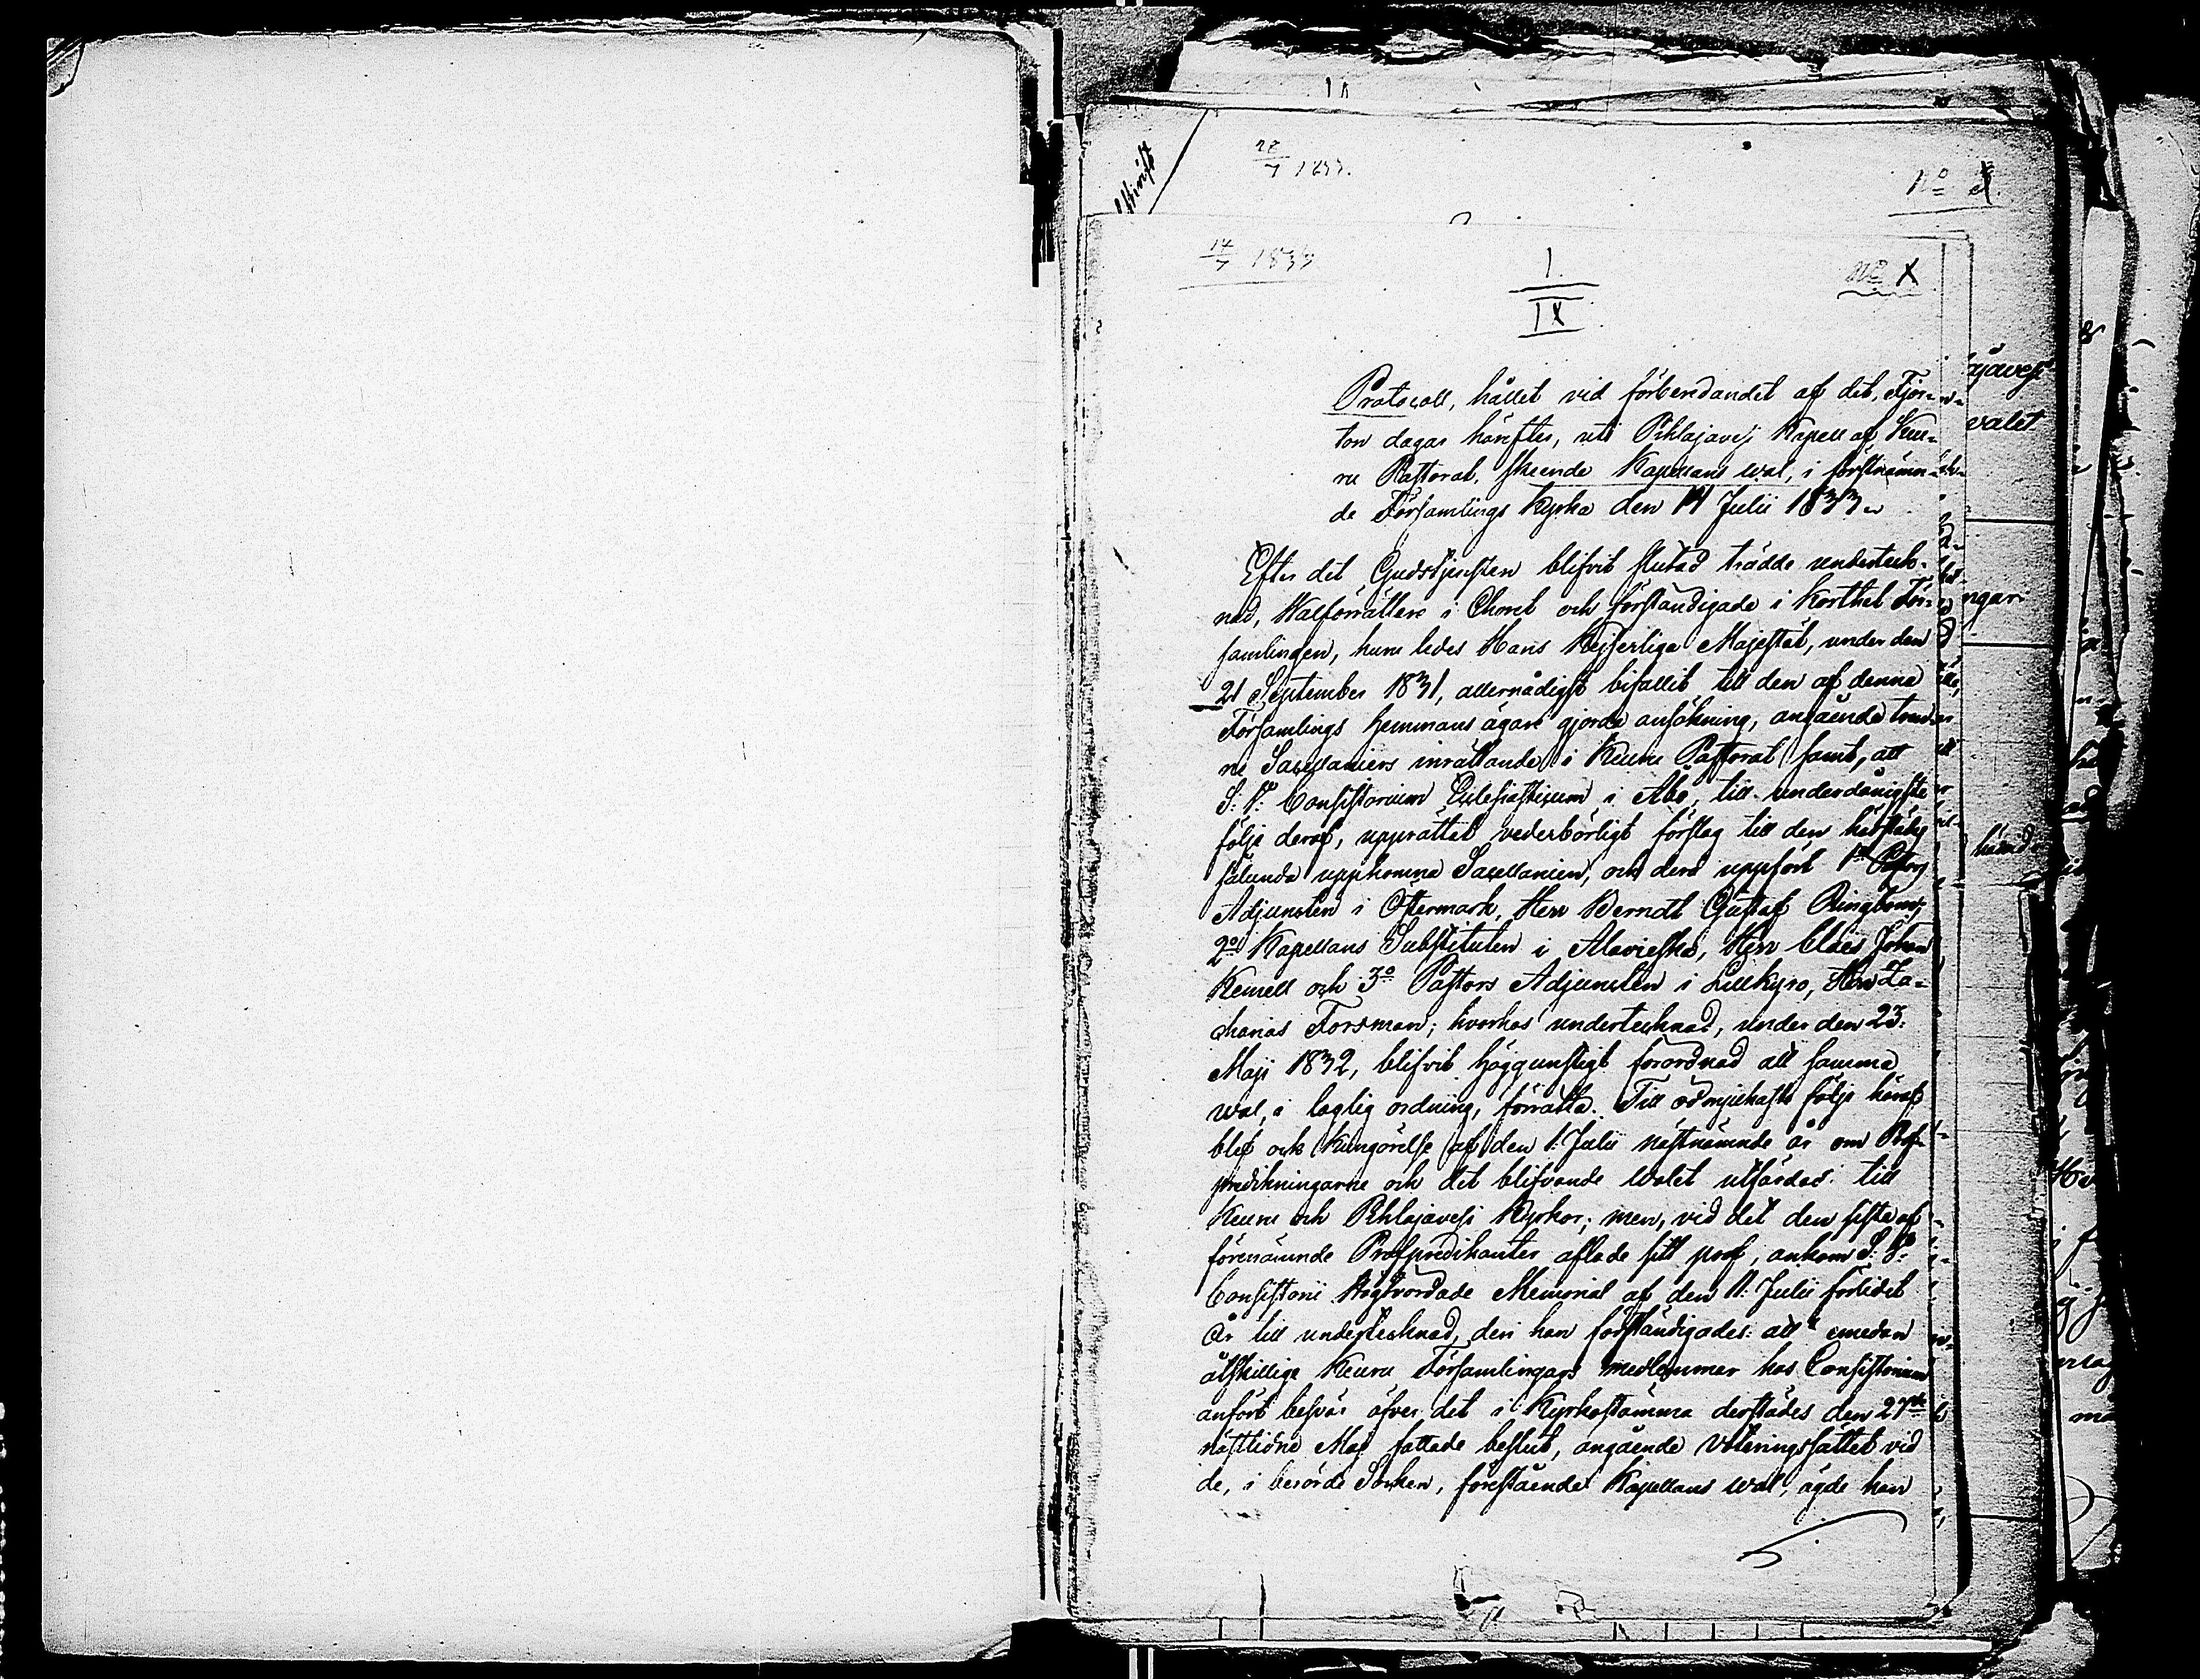 Afskrift
27/7 1833.
No
14/7 1833
No X
1
IX
Protocoll, hållet vid förberedandet af det, Fjor-
ton dagar härefter, uti Pihlajavesi Kapell af Keu-
ru Pastorat, skeende Kapellans wal, i förstnämn-
de Församlings Kyrka den 14 Julii 1833.
Efter det Gudstjensten blifvit slutad trädde underteck-
nad, Walförrättare i Choret och förständigade i korthet För-
samlingen, huru ledes Hans Kejserliga Majestät, under den
21 September 1831, allernådigst bifallit till den af denna
Församlings hemmans ägare gjorda ansökning, angående tven-
ne Sacellaniers inrättande i Keuru Pastorat samt, att
S: V: Consistorium Ecclesiasticum i Åbo, till underdånigste
följe deraf, upprättat vederbörligt förslag till den härstädes
sålunda uppkomna Sacellanien, och dera uppfört 1o Pastors
Adjuncten i Östermark, Herr Berndt Gustaf Ringbom;
2o Kapellans Substituten i Alavieska, Herr Claës Johan
Kemell och 3o Pastors Adjuncten i Lillkyro, Herr Za-
charias Forsman; hvarhos undertecknad, under den 23.
Maji 1832, blifvit höggunstigt förordnad att samma
wal, i laglig ordning, förrätta. Till ödmjukaste följe häraf
blef ock Kungörelse af den 1. Julii nästnämnde år om Prof-
predikningarne och det blifvande Walet utfärdad till
Keuru och Pihlajavesi Kyrkor; men, vid det den siste af
förenämnde Profpredikanter aflade sitt prof, ankom S: V:
Consistorii Högtvördade Memorial af den 11. Julii förlidet
År till undertecknad, deri han förständigades: att "emedan
åtskillige Keuru Församlingars medlemmar hos Consistorium
anfört besvär öfver det i Kyrkostämma derstädes den 27de
nästlidne Maj fattade beslut, angående Voteringssättet vid
de, i berörde Socken, förestående Kapellans wal, ägde han